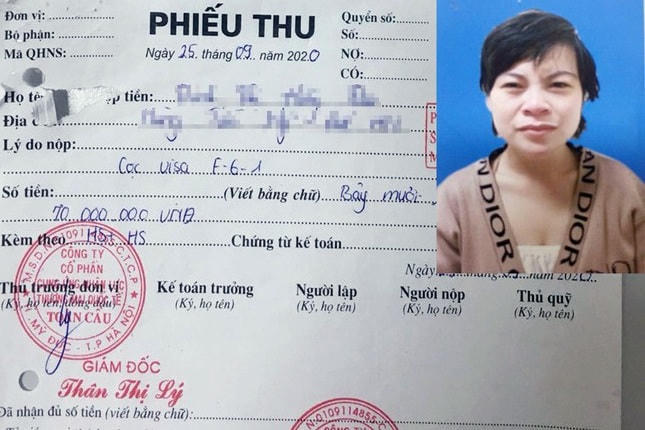 Đơn vị:
Bộ phận:
Mã QHNS:
PHIẾU THU
Ngày 25 tháng 09 năm 2020
Quyển số:
Số:
NỢ:
CÓ:
Họ tê p tiền:
Địa c
Lý do nộp:
Cọc visa F-6-1
Số tiền: (Viết bằng chữ) Bảy mươi
70.000.000 VNĐ
Kèm theo HS: HS Chứng từ kế toán:
Thủ trưởng đơn vị
(Ký, họ tên, đóng dấu)
Kế toán trưởng
(Ký, họ tên)
Người lập
(Ký, họ tên)
Người nộp
(Ký, họ tên)
Thủ quỹ
(Ký, họ tên)
CÔNG TY
CỔ PHẦN
TOÀN CẦU
MỸ ĐỨC - T.P HÀ NỘI
GIÁM ĐỐC
Thân Thị Lý
Đã nhận đủ số tiền (viết bằng chữ):
N:0109114855-C.T
AN DIOR
N DIOR